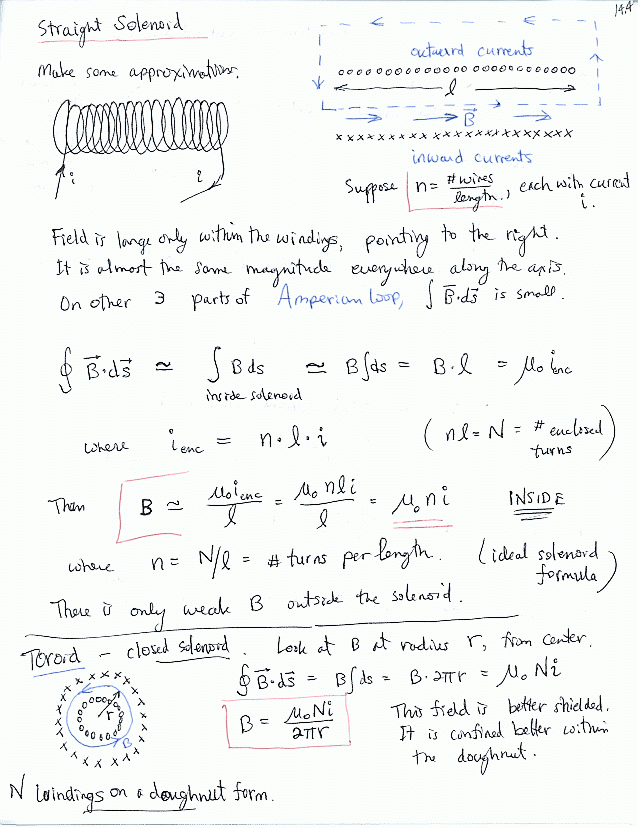 14.4
Straight Solenoid
Make some approximations.
outward currents
ooooooooooooooooo oooooooooo
l
B⃗
xxxxxxxxxxxxxxxxxxxxxxxx
inward currents
i i
Suppose n = #wires/length, each with current i.
Field is large only within the windings, pointing to the right.
It is almost the same magnitude everywhere along the axis.
On other 3 parts of Amperian loop, ∫ B⃗·ds⃗ is small.
∮ B⃗·ds⃗ ≃ ∫ B ds ≃ B∫ds = B·l = μ₀ i_enc
inside solenoid
where i_enc = n·l·i (nl = N = # enclosed turns)
Then B ≃ μ₀i_enc/l = μ₀nli/l = μ₀ n i INSIDE
where n = N/l = # turns per length. (ideal solenoid formula)
There is only weak B outside the solenoid.
Toroid – closed solenoid. Look at B at radius r, from center.
∮ B⃗·ds⃗ = B∫ds = B·2πr = μ₀ Ni
r
B
B = μ₀Ni/2πr
This field is better shielded.
It is confined better within
the doughnut.
N windings on a doughnut form.